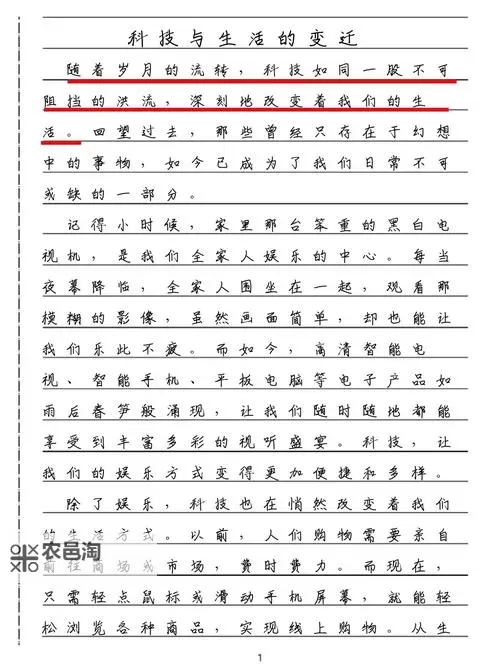 科技与生活的变迁
随着岁月的流转，科技如同一股不可
阻挡的洪流，深刻地改变着我们的生
活。回望过去，那些曾经只存在于幻想
中的事物，如今已成为了我们日常不可
或缺的一部分。
记得小时候，家里那台笨重的黑白电
视机，是我们全家人娱乐的中心。每当
夜幕降临，全家人围坐在一起，观看那
模糊的影像，虽然画面简单，却也能让
我们乐此不疲。而如今，高清智能电
视、智能手机、平板电脑等电子产品如
雨后春笋般涌现，让我们随时随地都能
享受到丰富多彩的视听盛宴。科技，让
我们的娱乐方式变得更加便捷和多样。
除了娱乐，科技也在悄然改变着我们
的生活方式。以前，人们购物需要亲自
前往商场或市场，费时费力。而现在，
只需轻点鼠标或滑动手机屏幕，就能轻
松浏览各种商品，实现线上购物。从生
农邑淘
1